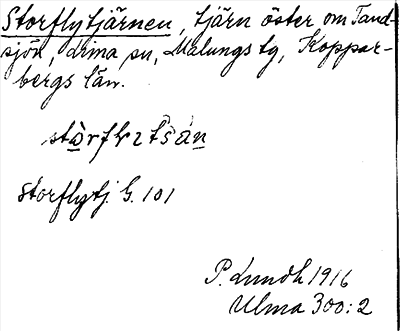 Storflytjärnen, tjärn öster om Tand-
sjön, Lima sn, Malungs tg, Koppar-
bergs län.
Storflytj. G. 101
P. Lundh 1916
Ulma 300:2